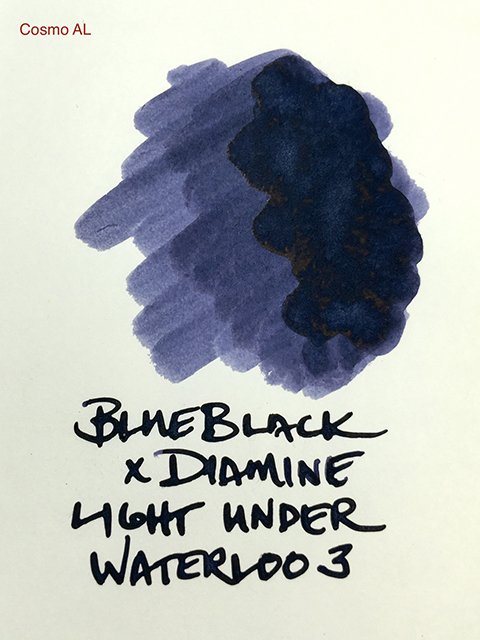 Cosmo AL
BLUEBLACK
x DIAMINE
LIGHT UNDER
WATERLOO 3